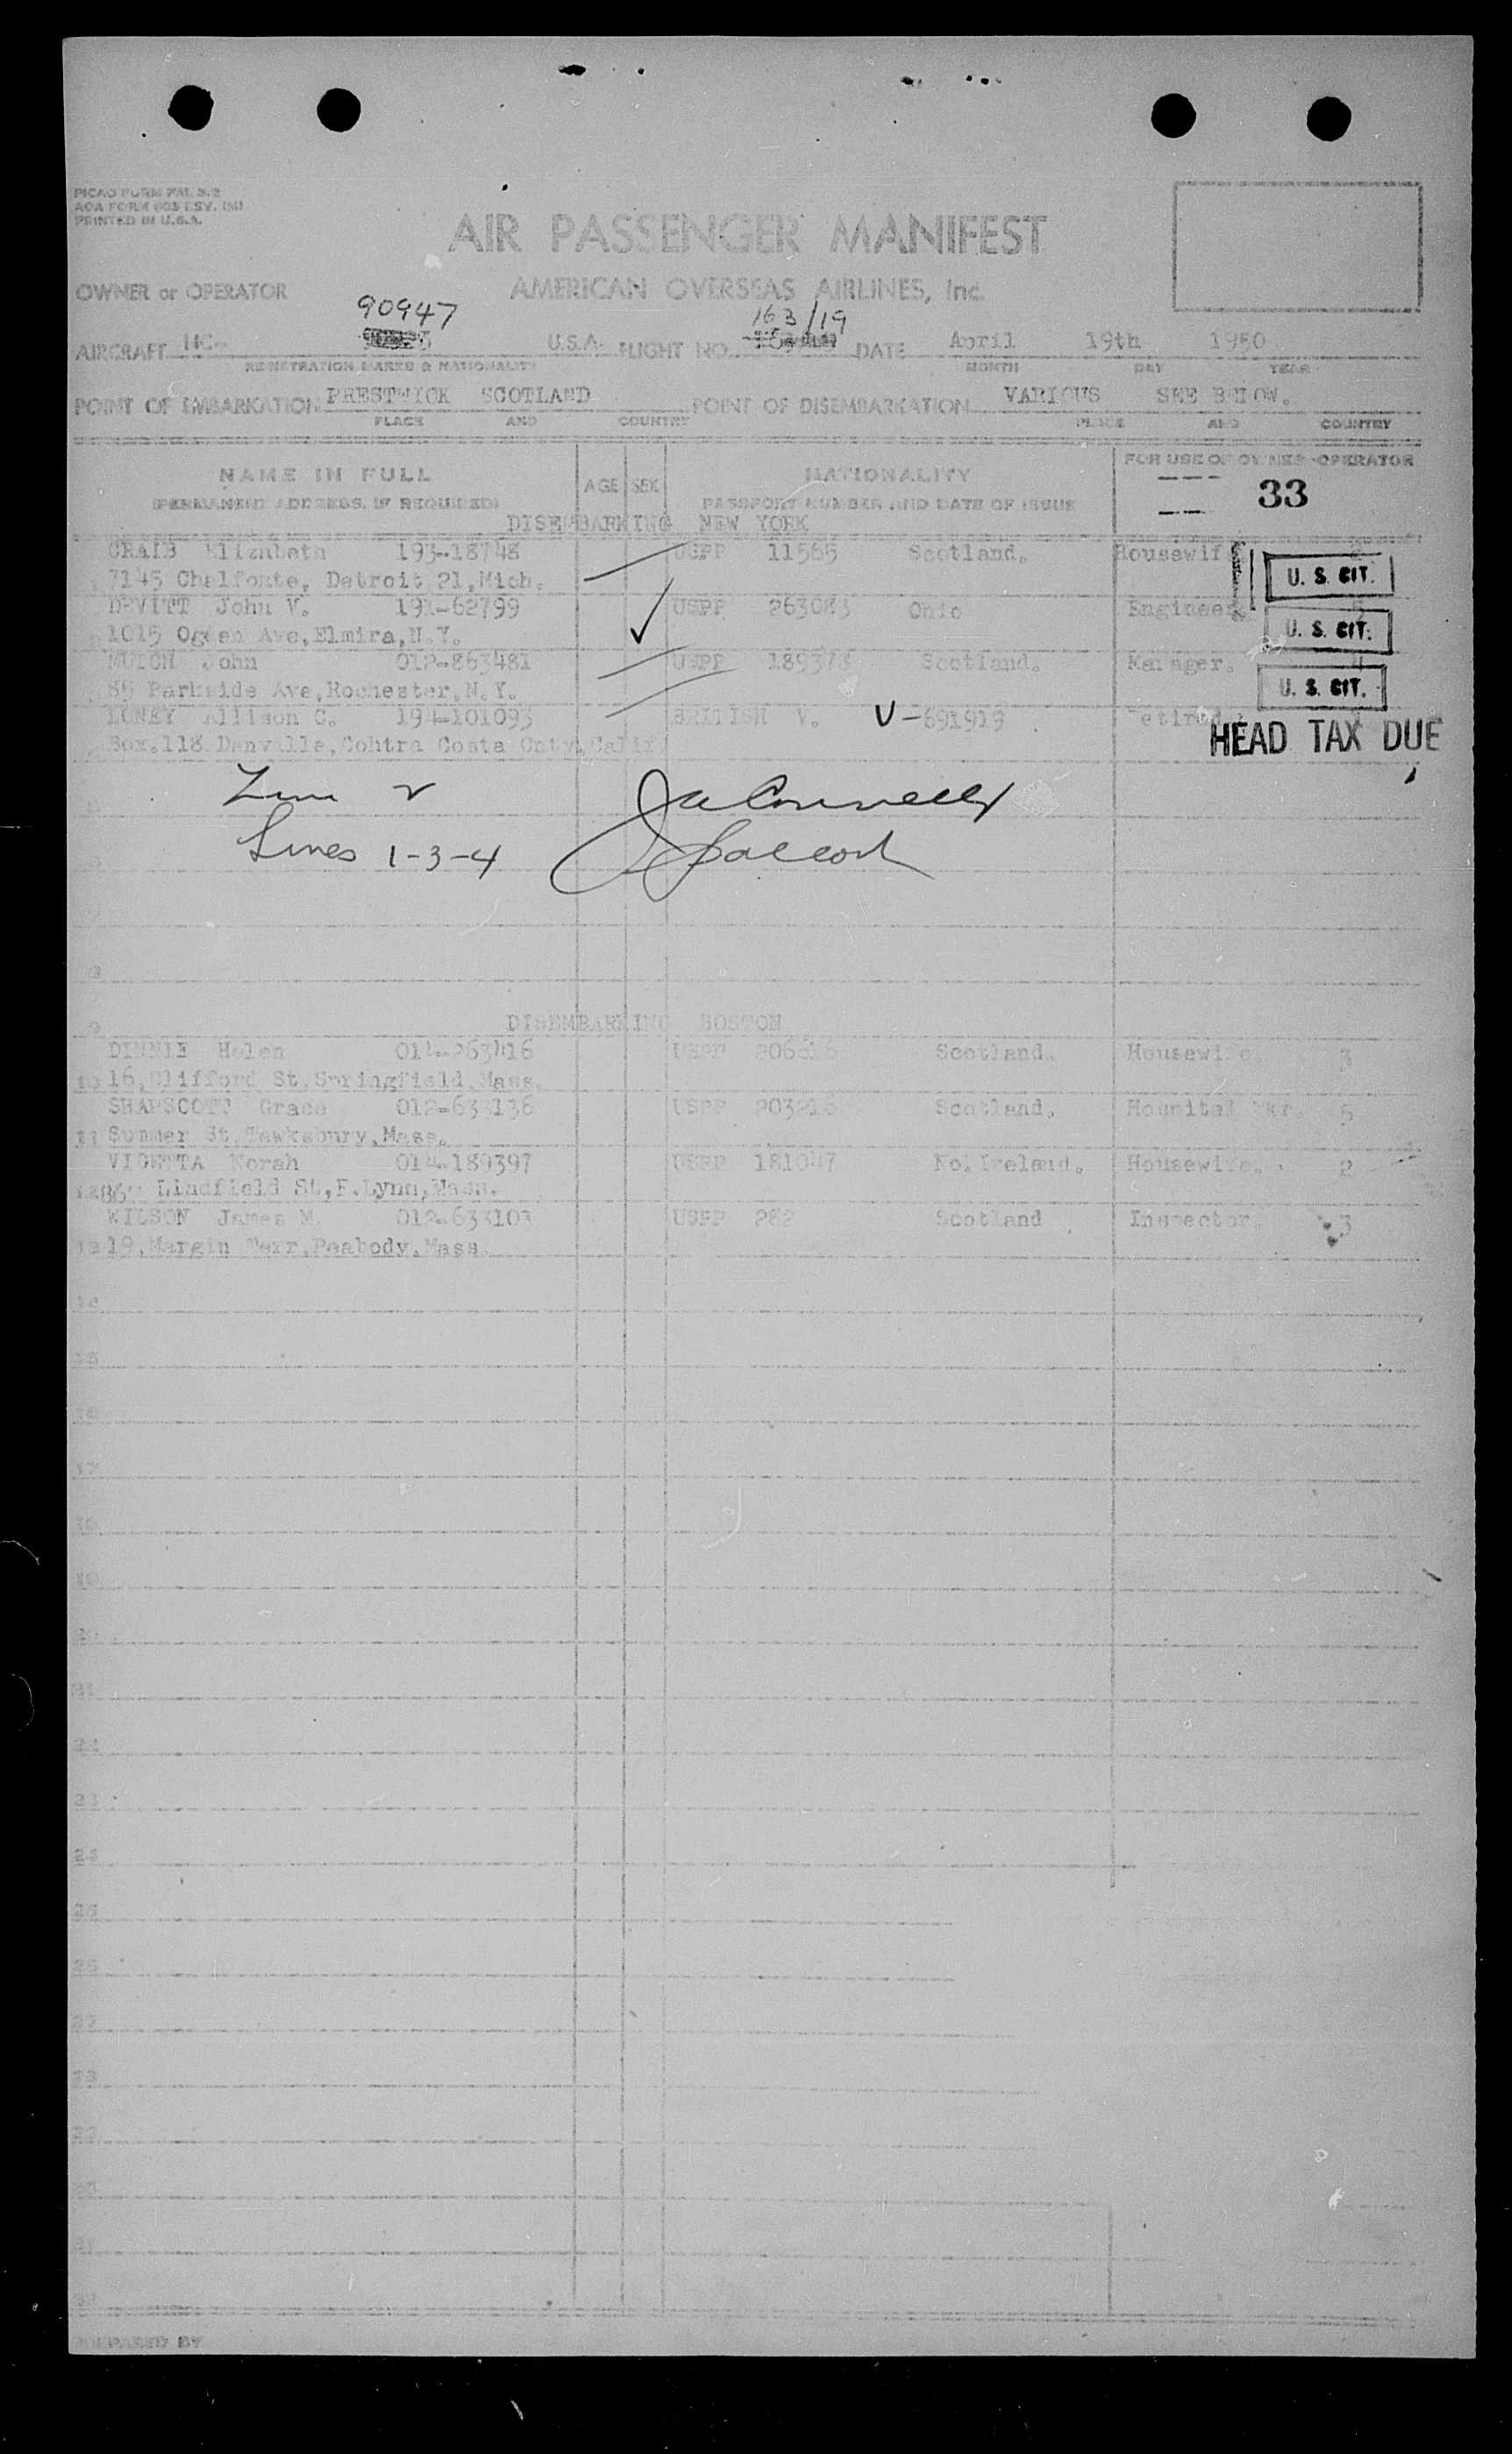 PICAO FORM PAI. 3.2
AOA FORM 603 REV.
PRINTED IN U.S.A.
AIR PASSENGER MANIFEST
OWNER or OPERATOR AMERICAN OVERSEAS AIRLINES, Inc.
90947 163/19
AIRCRAFT NC- U.S.A. FLIGHT NO. DATE April 19th 1950
REGISTRATION MARKS & NATIONALITY MONTH DAY YEAR
POINT OF EMBARKATION PRESTWICK SCOTLAND POINT OF DISEMBARKATION VARIOUS SEE BELOW.
PLACE AND COUNTRY PLACE AND COUNTRY
NAME IN FULL AGE SEX NATIONALITY FOR USE OF OWNER-OPERATOR
(PERMANENT ADDRESS, IF REQUIRED) PASSPORT NUMBER AND DATE OF ISSUE 33
DISEMBARKING NEW YORK
CRAIB Elizabeth 193-18748 USPP 11565 Scotland. Housewife U. S. CIT.
7145 Chalfonte, Detroit 21, Mich.
DEVITT John V. USPP 263083 Ohio Engineer U. S. CIT.
1015 Ogden Ave, Elmira, N.Y.
MUTCH John 012-863481 USPP Scotland. Manager. U. S. CIT.
Parkside Ave, Rochester, N.Y.
LONEY Allison C. 194-101093 BRITISH V. V-691919 Retired
Box.118 Danville, Contra Costa Cnty, Calif HEAD TAX DUE
Line 2
Lines 1-3-4
DISEMBARKING BOSTON
DINNIE Helen 014-263416 USPP Scotland. Housewife. 3
10 16, Clifford St, Springfield, Mass.
SHAPSCOTT Grace 012-633136 USPP 203216 Scotland. Hospital Wkr. 5
11 Summer St, Tewksbury, Mass.
VIGETTA Norah 014-189397 USPP 181047 No. Ireland. Housewife. 2
12 Lindfield St, E. Lynn, Mass.
WILSON James M. 012-633103 USPP 282 Scotland Inspector. 3
13 19, Margin Terr, Peabody, Mass.
14
15
16
17
18
19
20
21
22
23
24
25
26
27
28
29
30
31
32
PREPARED BY